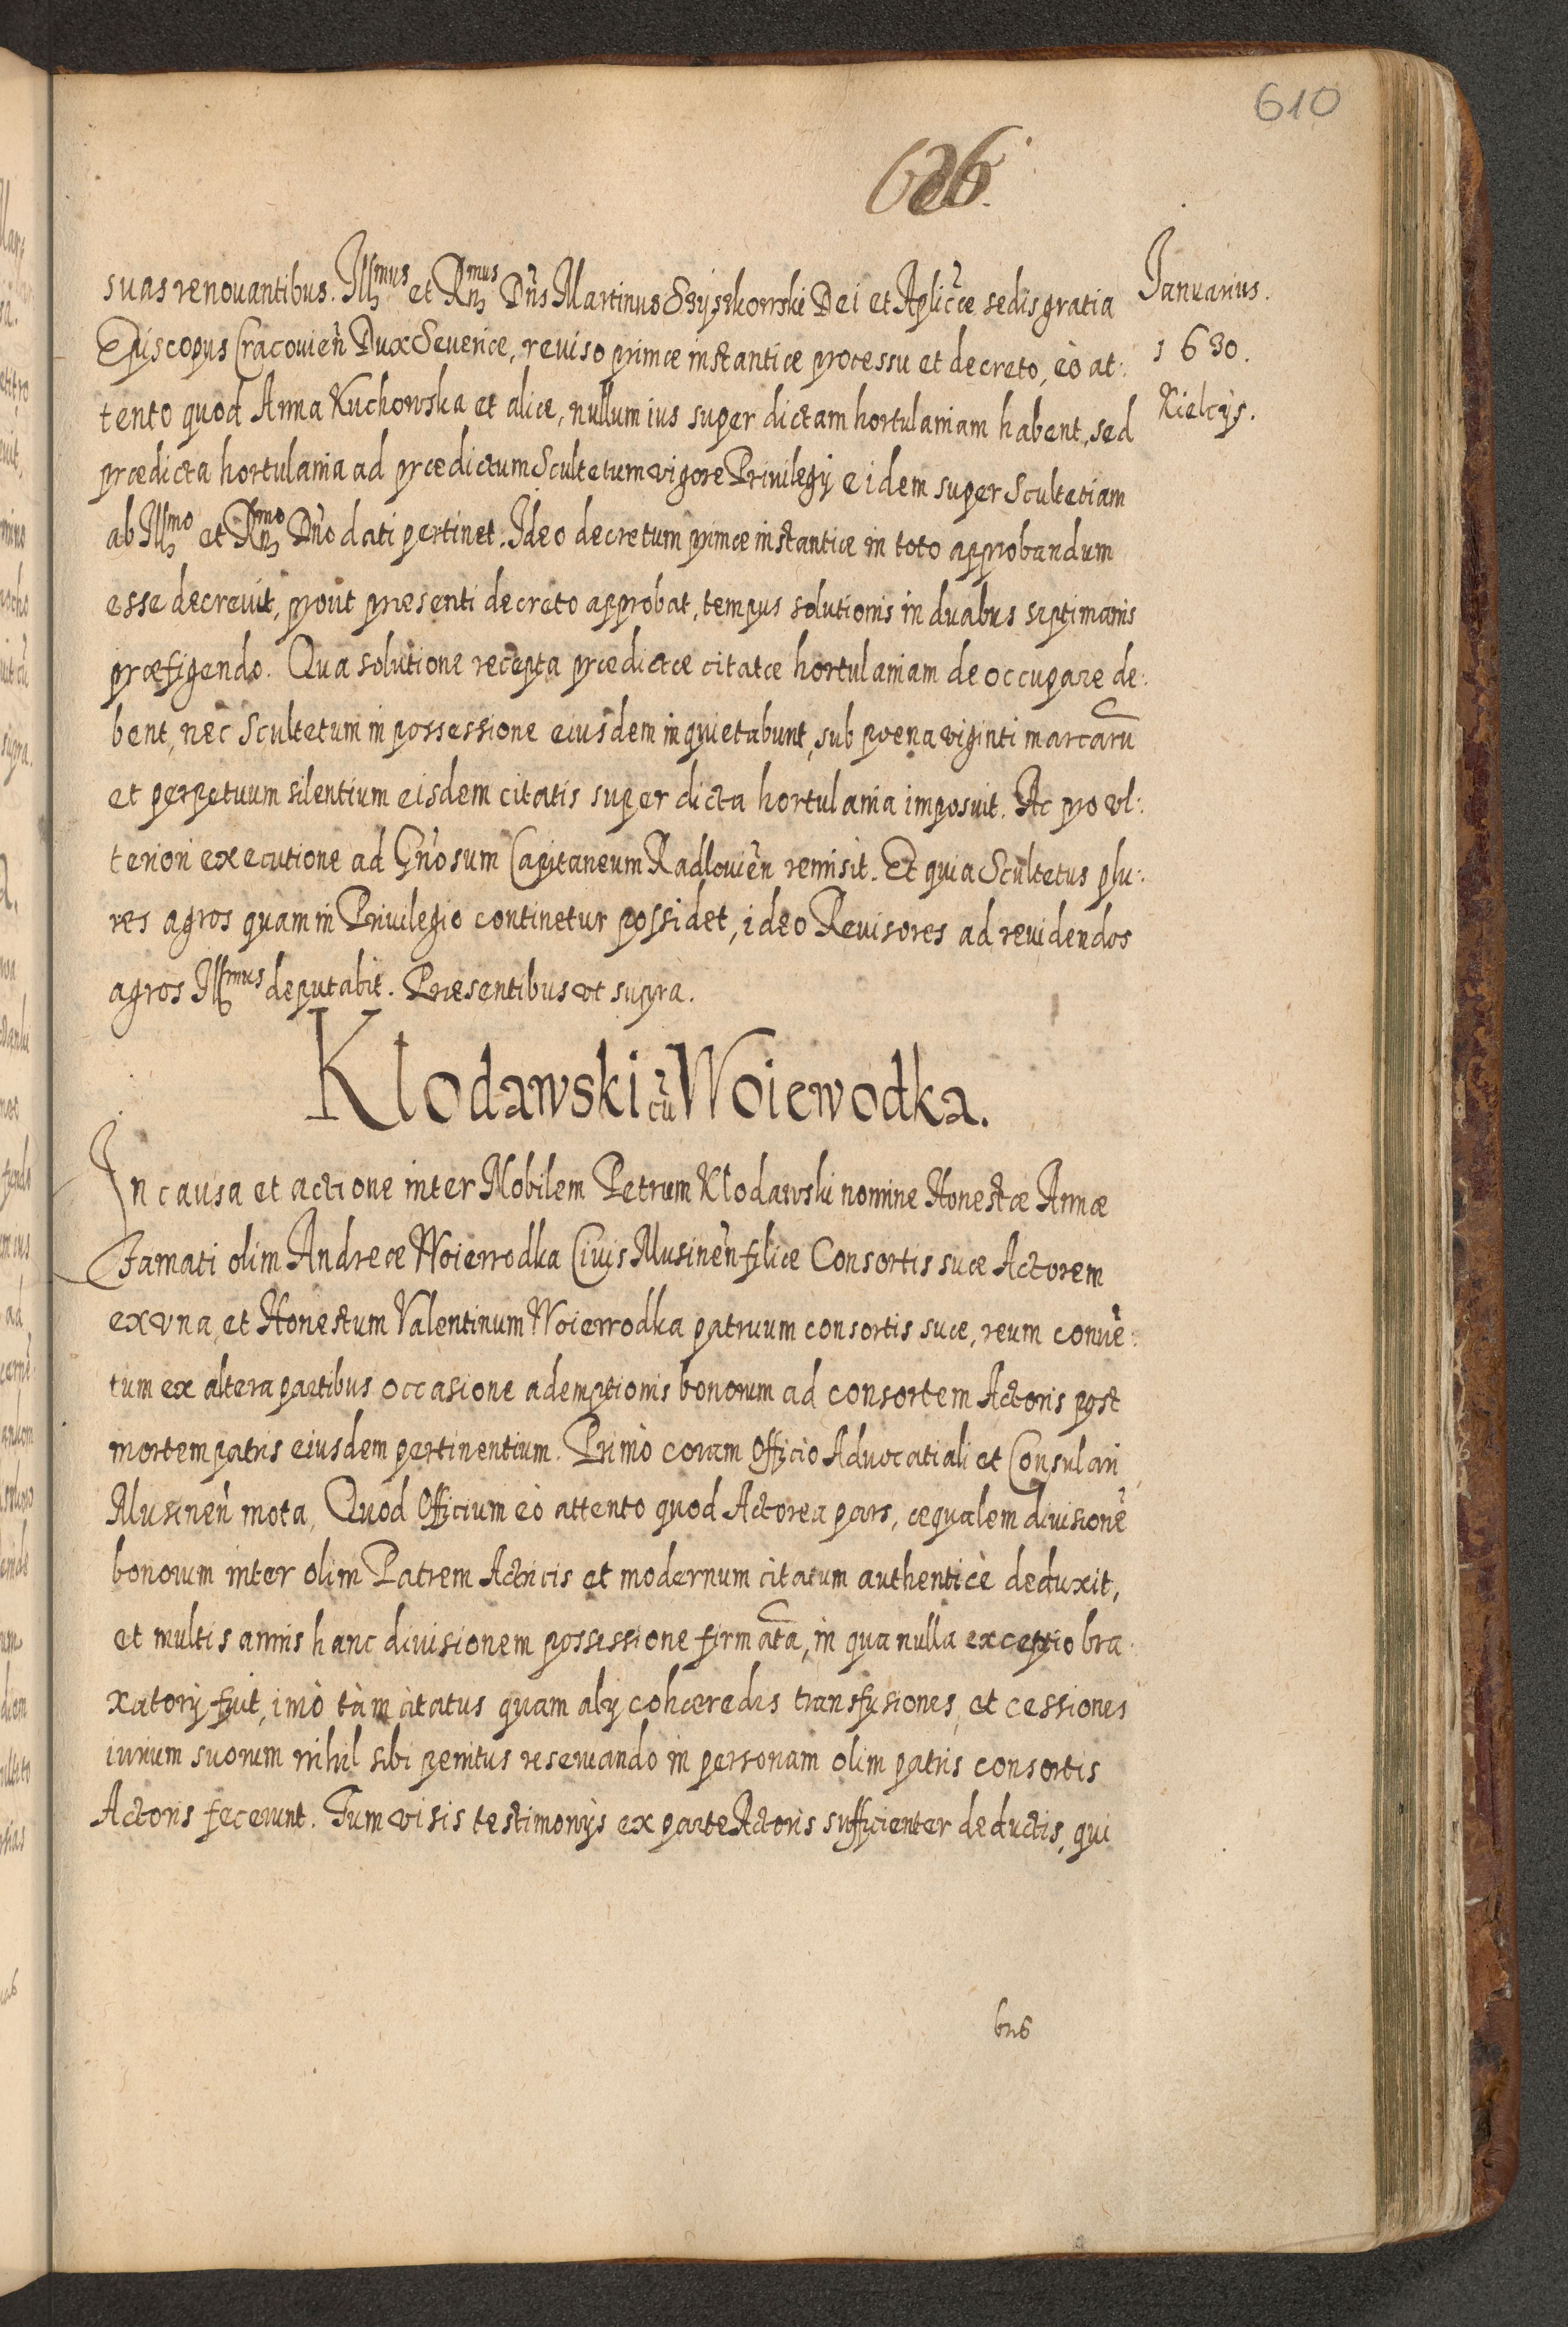 610
626.
Januarius.
1630.
Kielcijs.
suas renouantibus. Illmus et Rmus Dns Martinus Szyszkowski Dei et Aplicæ sedis gratia
Episcopus Cracouien Dux Seueriæ, reuiso primæ instantiæ processu et decreto, eò at:
tento quod Anna Kuchowska et aliæ, nullum ius super dictam hortulaniam habent, sed
prædicta hortulania ad prædictum Scultetum vigore Priuilegij eidem super Scultetiam
ab Illmo et Rmo Dno dati pertinet. Ideo decretum primæ instantiæ in toto approbandum
esse decreuit, prout præsenti decreto approbat, tempus solutionis in duabus septimanis
præfigendo. Qua solutione recepta prædictæ citatæ hortulaniam deoccupare de:
bent, nec Scultetum in possessione eiusdem inquietabunt, sub poena viginti marcarū
et perpetuum silentium eisdem citatis super dicta hortulania imposuit. Ac pro vl:
teriori executione ad Gnosum Capitaneum Radlouien remisit. Et quia Scultetus plu:
res agros quam in Priuilegio continetur possidet, ideo Reuisores ad reuidendos
agros Illmus deputabit. Præsentibus vt supra.
Kłodawski cū Woiewodka.
In causa et actione inter Nobilem Petrum Kłodawski nomine Honestæ Annæ
Famati olim Andreæ Woiewodka Ciuis Musinen filiæ Consortis suæ Actorem
ex vna, et Honestum Valentinum Woiewodka patruum consortis suæ, reum conuē:
tum ex altera partibus occasione ademptionis bonorum ad consortem Actoris post
mortem patris eiusdem pertinentium. Primò coram Officio Aduocatiali et Consulari
Musinen mota, Quod Officium eò attento quod Actorea pars, æqualem diuisionē
bonorum inter olim Patrem Actricis et modernum citatum authenticè deduxit,
et multis annis hanc diuisionem possessione firmatā, in qua nulla exceptio bra
xatorij fuit, imò tàm citatus quam alij cohæredes transfusiones, et cessiones
iurium suorum nihil sibi penitus reseruando in personam olim patris consortis
Actoris fecerunt. Tum visis testimonijs ex parte Actoris sufficienter deductis, qui
bus